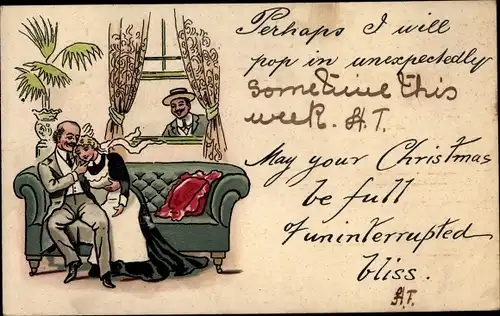 Perhaps I will
pop in unexpectedly
sometime this
week. A.T.
May your Christmas
be full
of uninterrupted
bliss.
A.T.